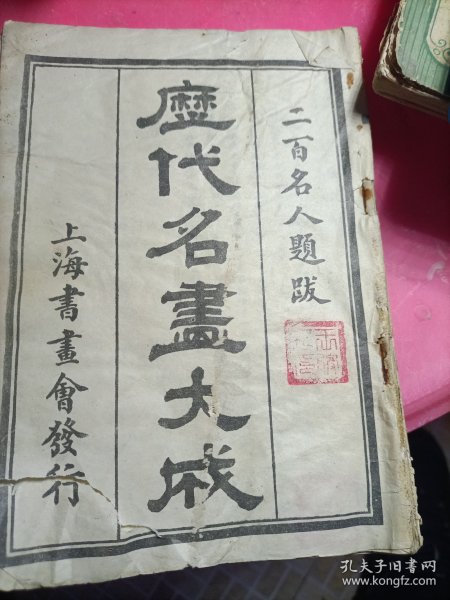 二百名人題跋
歷代名畫大成
上海書畫會發行
孔夫子旧书网
www.kongfz.com